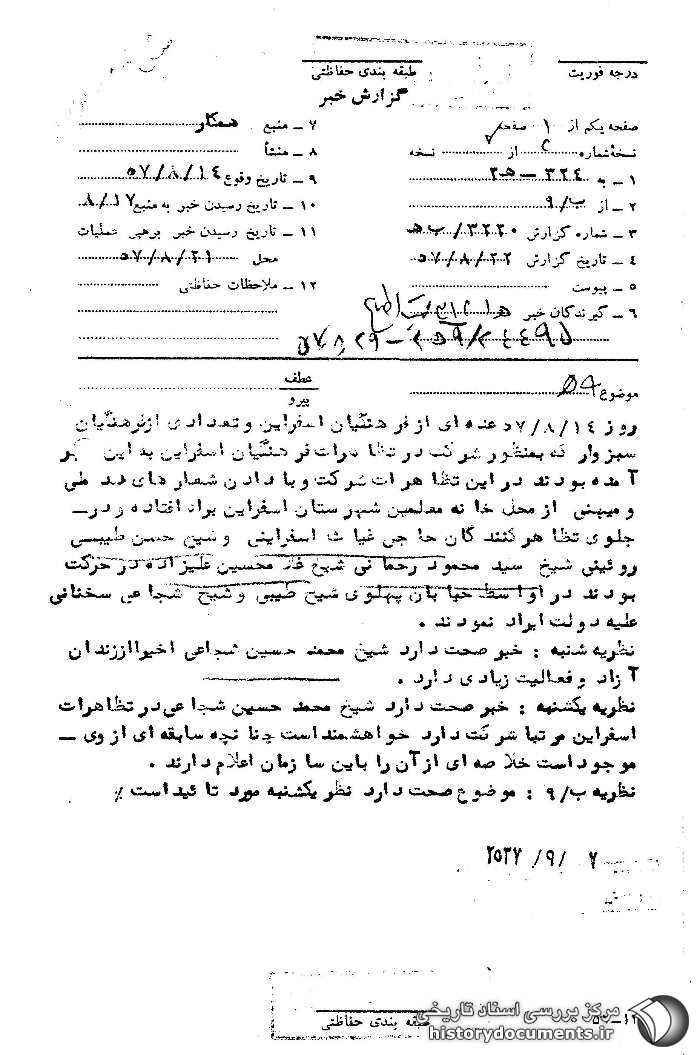 درجه فوریت
طبقه بندی حفاظتی
گزارش خبر
صفحه یکم از ۱ صفحه
نسخهٔ شماره ۲ از ۲ نسخه
۱ ـ به ۳۲۴ ـ ه۲
۲ ـ از ۹/ب
۳ ـ شماره گزارش ۳۲۲۰/ب ه
۴ ـ تاریخ گزارش ۵۷/۸/۲۲
۵ ـ پیوست
۶ ـ گیرندگان خبر
۷ ـ منبع همکار
۸ ـ منشأ
۹ ـ تاریخ وقوع ۵۷/۸/۱۴
۱۰ ـ تاریخ رسیدن خبر به منبع ۸/۱۷
۱۱ ـ تاریخ رسیدن خبر برهبر عملیات
محل ۵۷/۸/۲۱
۱۲ ـ ملاحظات حفاظتی
موضوع
عطف
پیرو
روز ۵۷/۸/۱۴ عده ای از فرهنگیان اسفراین و تعدادی از فرهنگیان
سبزوار که بمنظور شرکت در تظاهرات فرهنگیان اسفراین به این
آمده بودند در این تظاهرات شرکت و با دادن شعارهای ضد ملی
و میهنی از محل خانه معلمین شهرستان اسفراین براه افتاده و در ـ
جلوی تظاهرکنندگان حاجی غیاث اسفراینی و شیخ حسن طیبی
روئینی شیخ سید محمود رحمانی شیخ غلامحسین علیزاده در حرکت
بودند در اواسط خیابان پهلوی شیخ طیبی و شیخ شجاعی سخنانی
علیه دولت ایراد نمودند .
نظریه شنبه : خبر صحت دارد شیخ محمد حسین شجاعی اخیرا از زندان
آزاد و فعالیت زیادی دارد .
نظریه یکشنبه : خبر صحت دارد شیخ محمد حسین شجاعی در تظاهرات
اسفراین مرتبا شرکت دارد خواهشمند است چنانچه سابقه ای از وی ـ
موجود است خلاصه ای از آن را باین سازمان اعلام دارند .
نظریه ۹/ب : موضوع صحت دارد نظر یکشنبه مورد تائید است ٪
۲۵۳۷/۹/۷
طبقه بندی حفاظتی
مرکز بررسی اسناد تاریخی
historydocuments.ir